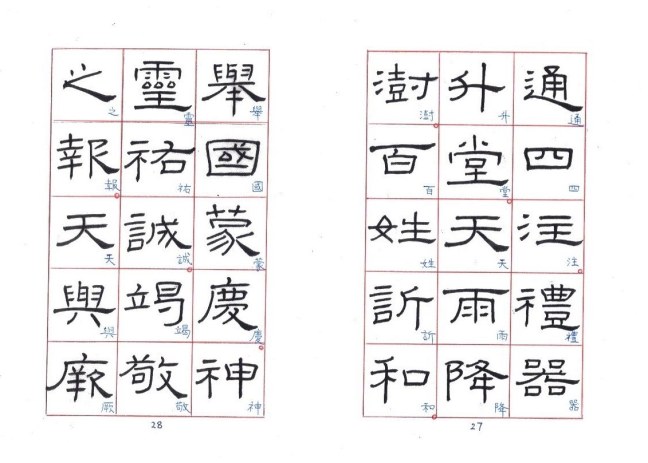 通四注禮器
通四注禮器
升堂天雨降
升堂天雨降
澍百姓訢和
澍百姓訢和
27
舉國蒙慶神
舉國蒙慶神
靈祐誠竭敬
靈祐誠竭敬
之報天與厥
之報天與厥
28